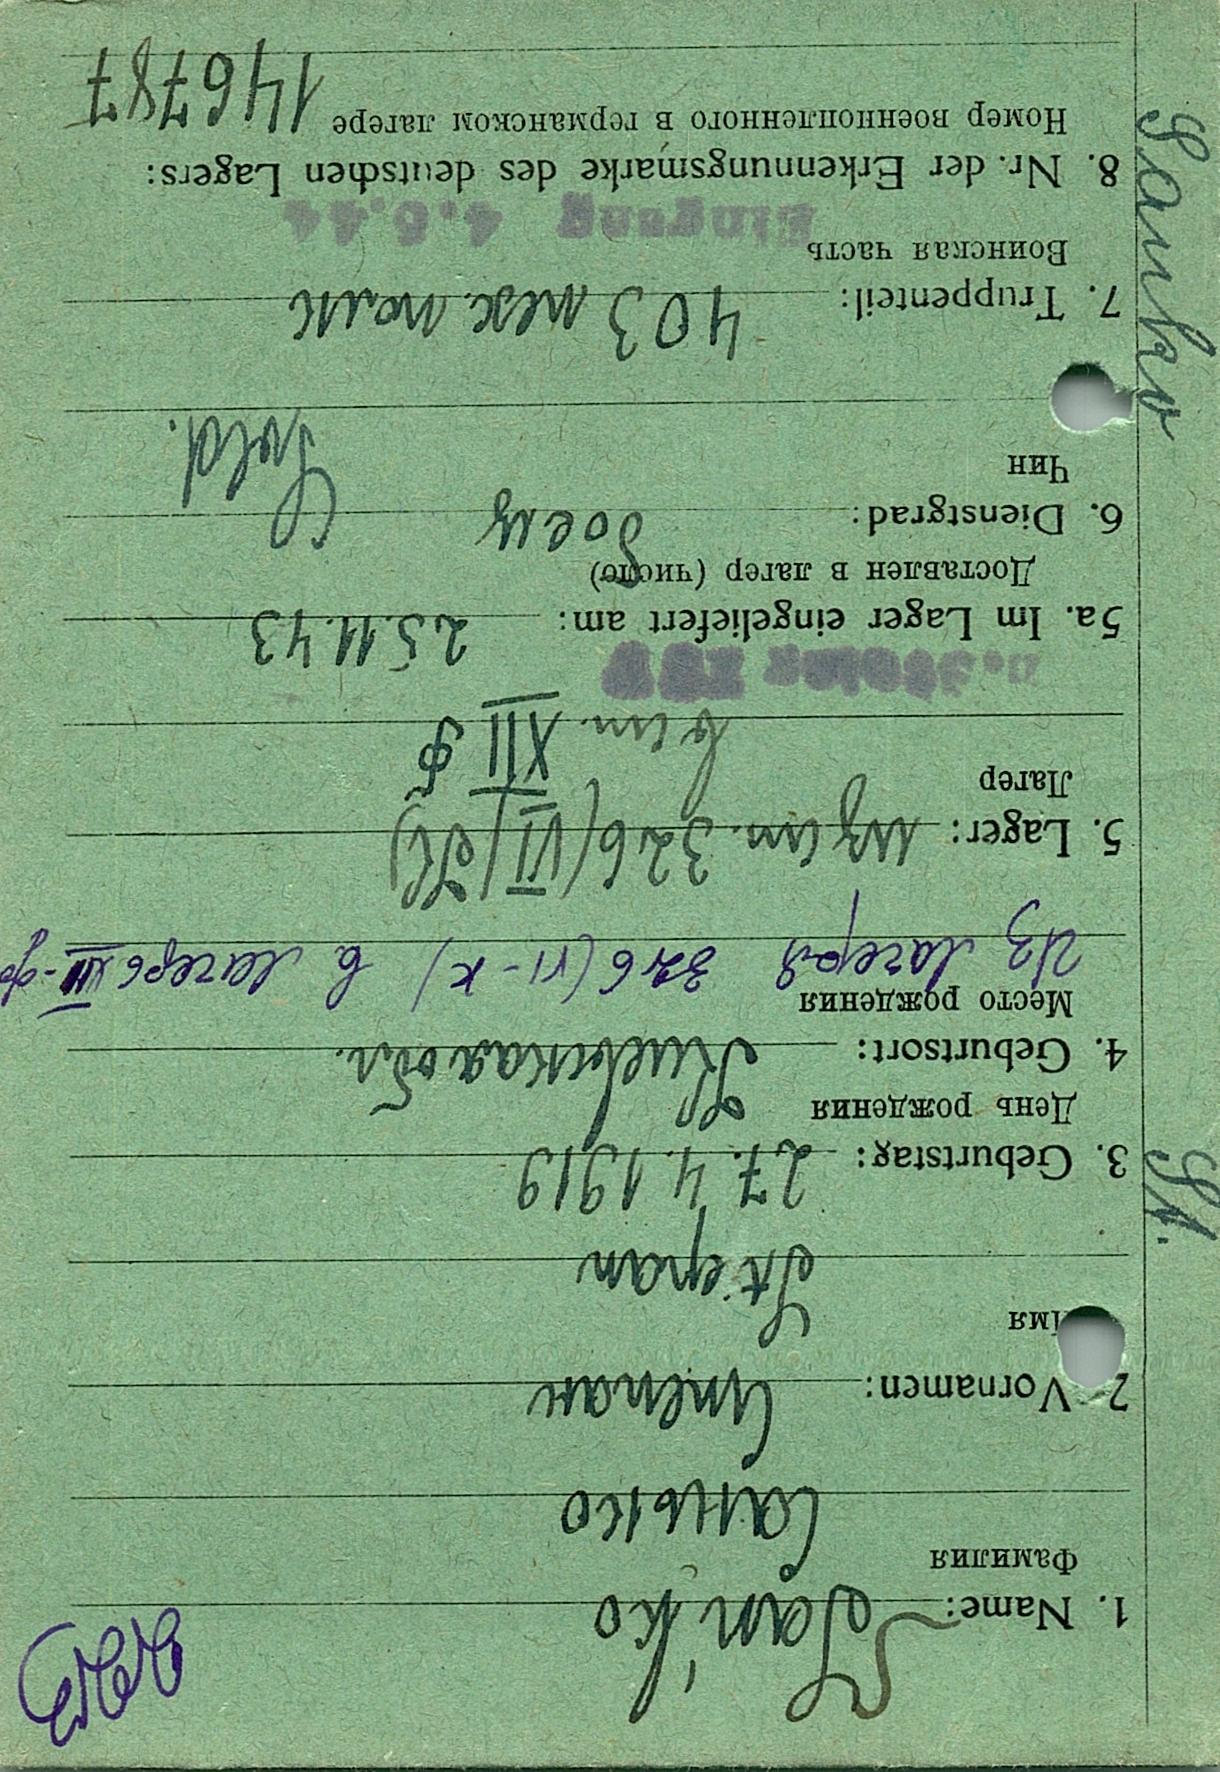 1. Name: San'ko
Фамилия
Санько
2. Vornamen: Степан
Имя
Stepan
3. Geburtstag: 27.4.1919
День рождения
4. Geburtsort: Киевская обл.
Место рождения
Из лагеря 326 (VI-K) в лагерь XII-ф
5. Lager: из шт. 326 (VI/K)
Лагерь
в шт. XII Ф
5a. Im Lager eingeliefert am: 25.11.43
Доставлен в лагер (число)
6. Dienstgrad: боец Sold.
Чин
7. Truppenteil: 403 мех. полк
Воинская часть
Eingang 4.6.44
8. Nr. der Erkennungsmarke des deutschen Lagers:
Номер военнопленного в германском лагере 146787
Sanko St.